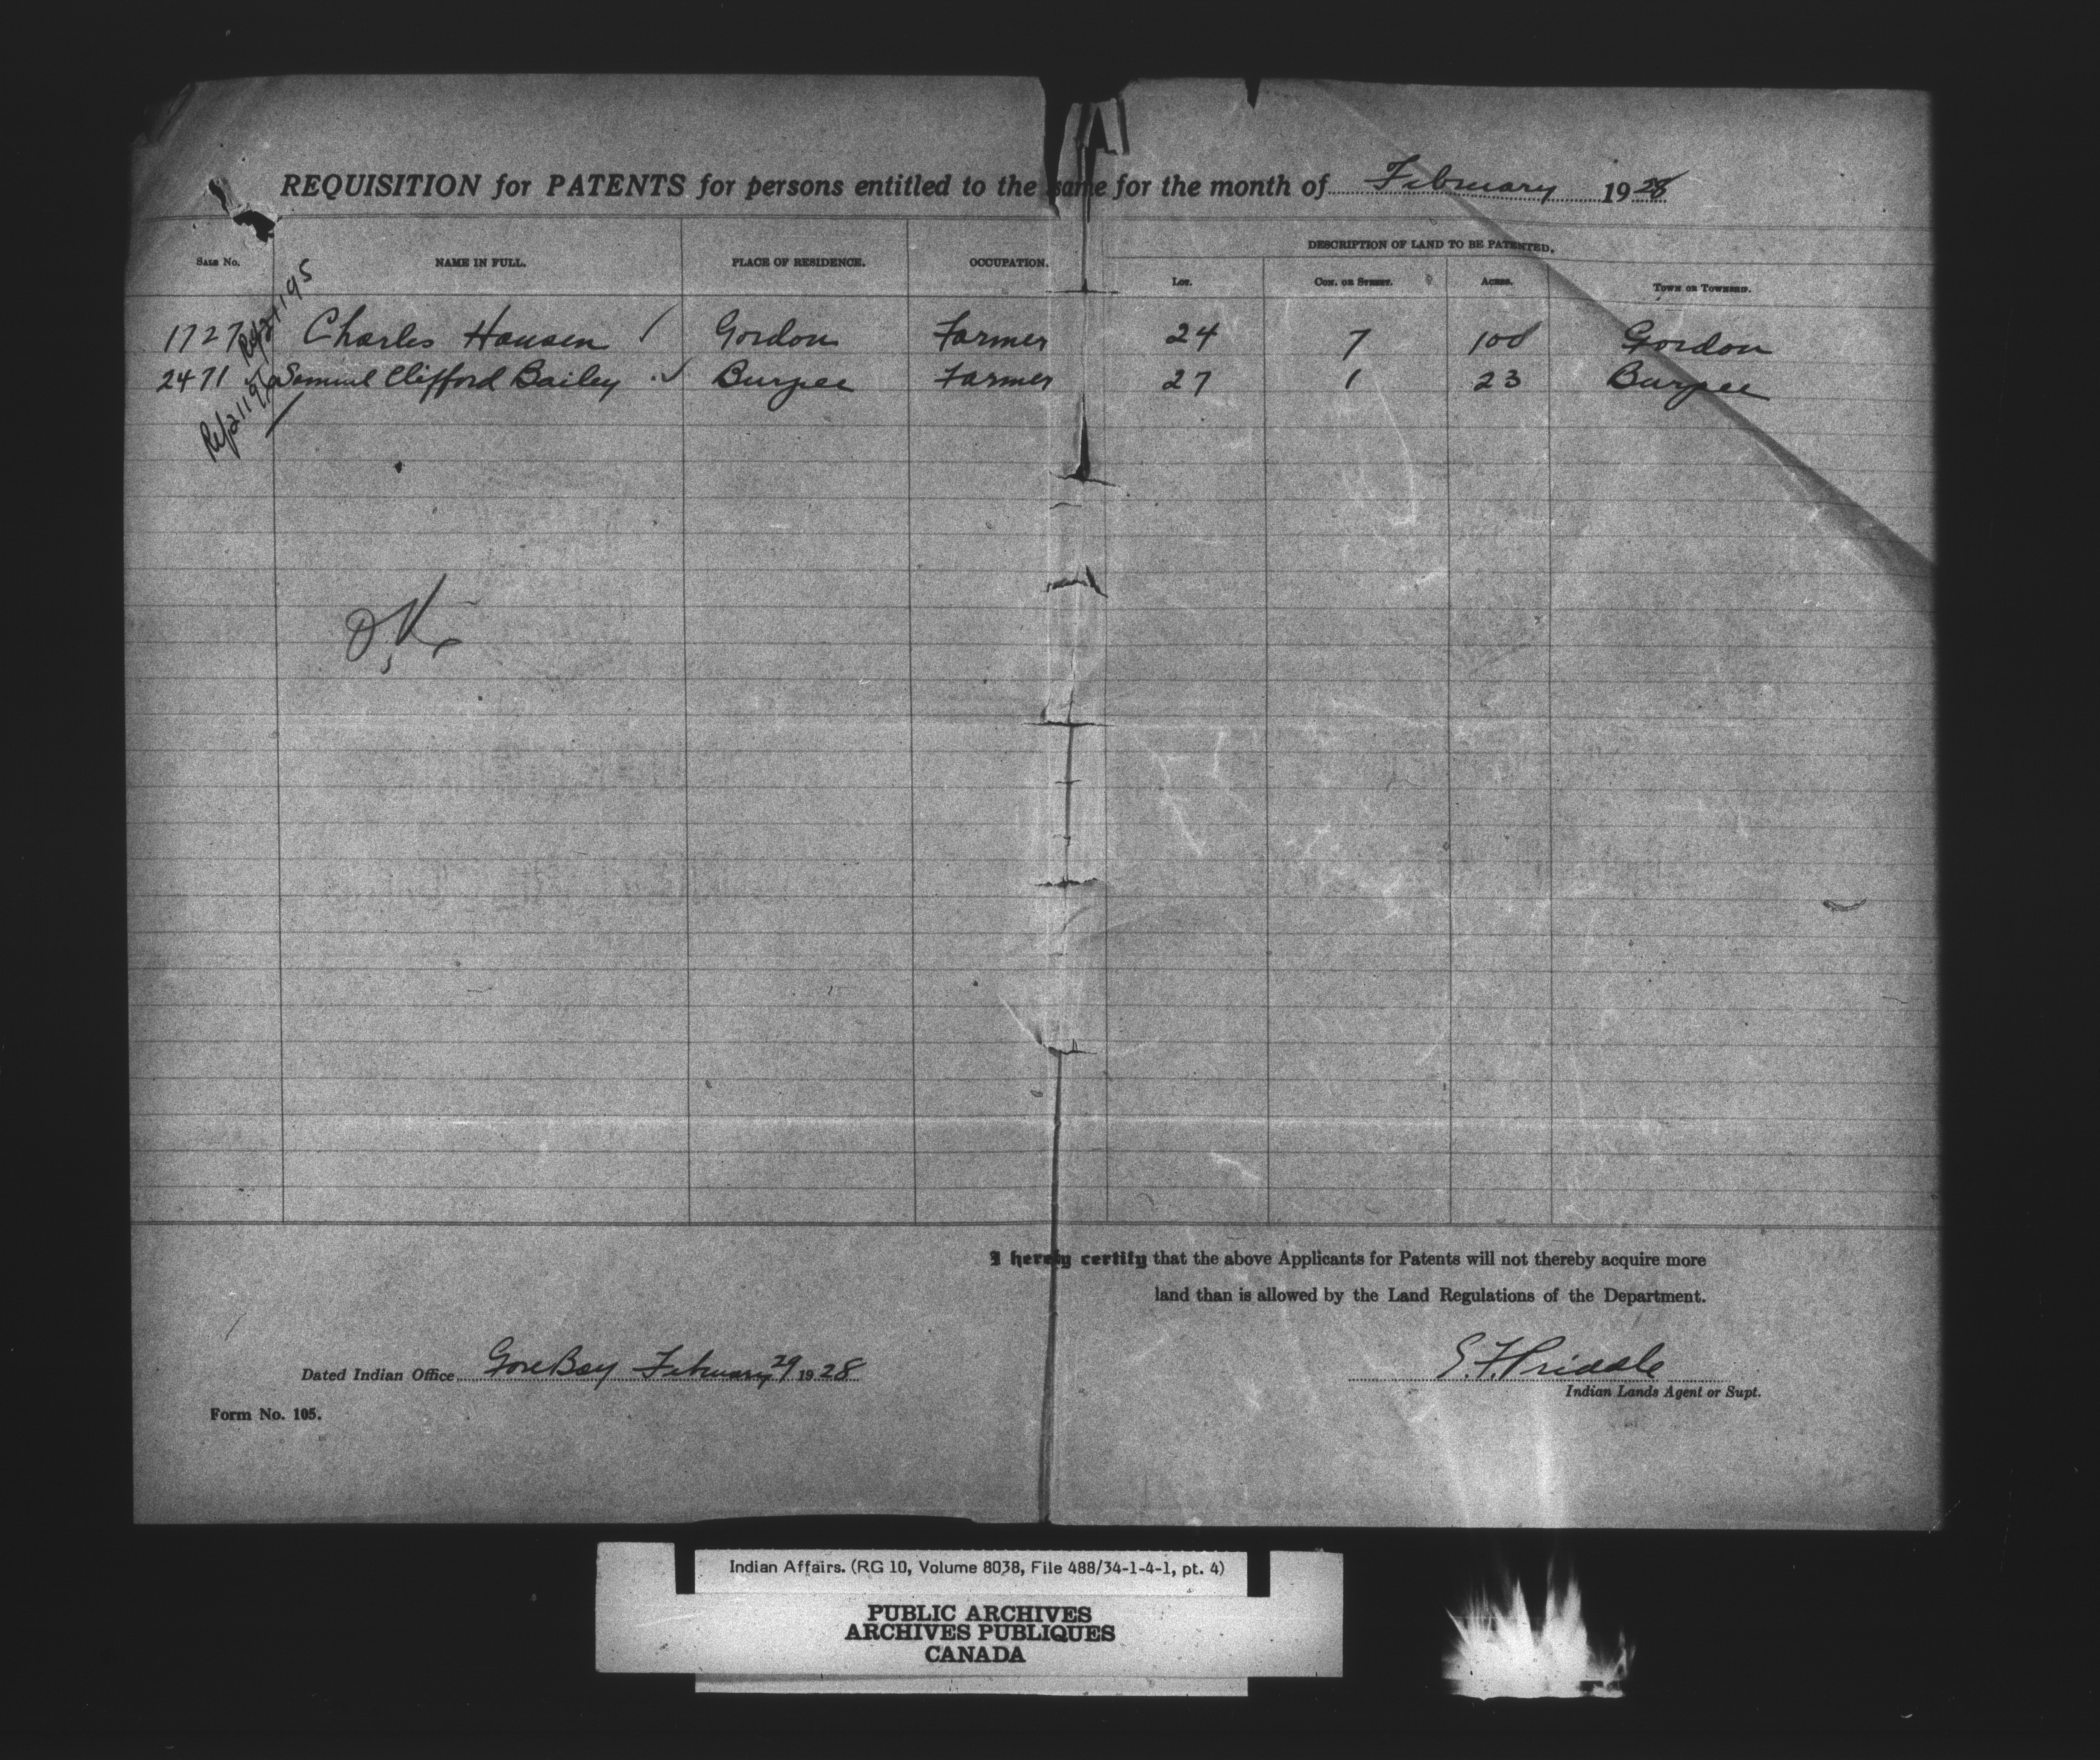 REQUISITION for PATENTS for persons entitled to the same for the month of February 1928
DESCRIPTION OF LAND TO BE PATENTED.
SALE No. NAME IN FULL. PLACE OF RESIDENCE. OCCUPATION. LOT. CON. OR STREET. ACRES. TOWN OR TOWNSHIP.
1727 Charles Hansen Gordon Farmer 24 7 100 Gordon
2471 Samuel Clifford Bailey Burpee Farmer 27 1 23 Burpee
O.K.
I hereby certify that the above Applicants for Patents will not thereby acquire more
land than is allowed by the Land Regulations of the Department.
Dated Indian Office Gore Bay February 29 1928
S. F. Priddle
Indian Lands Agent or Supt.
Form No. 105.
Indian Affairs. (RG 10, Volume 8038, File 488/34-1-4-1, pt. 4)
PUBLIC ARCHIVES
ARCHIVES PUBLIQUES
CANADA